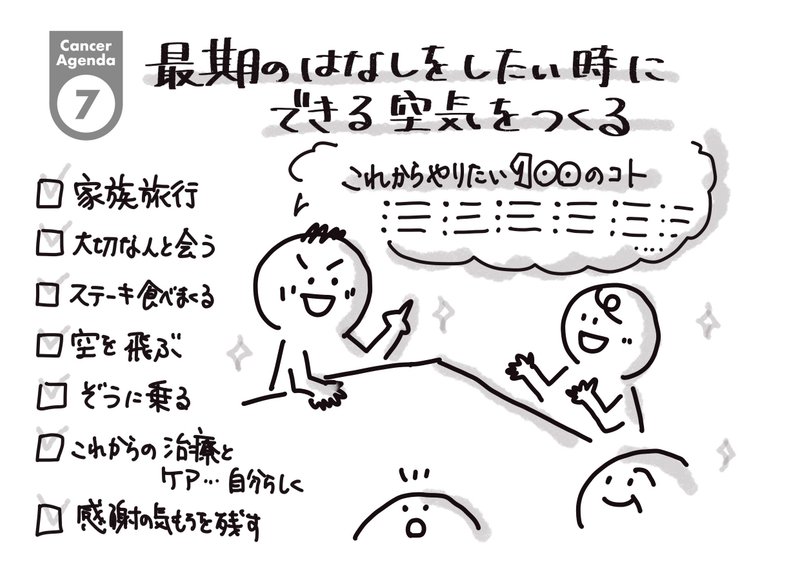 Cancer
Agenda
7
最期のはなしをしたい時に
できる空気をつくる
これからやりたい100のコト
家族旅行
大切なんと会う
ステーキ食べまくる
空を飛ぶ
ぞうに乗る
これからの治療と
ケア…自分らしく
感謝の気もちを残す